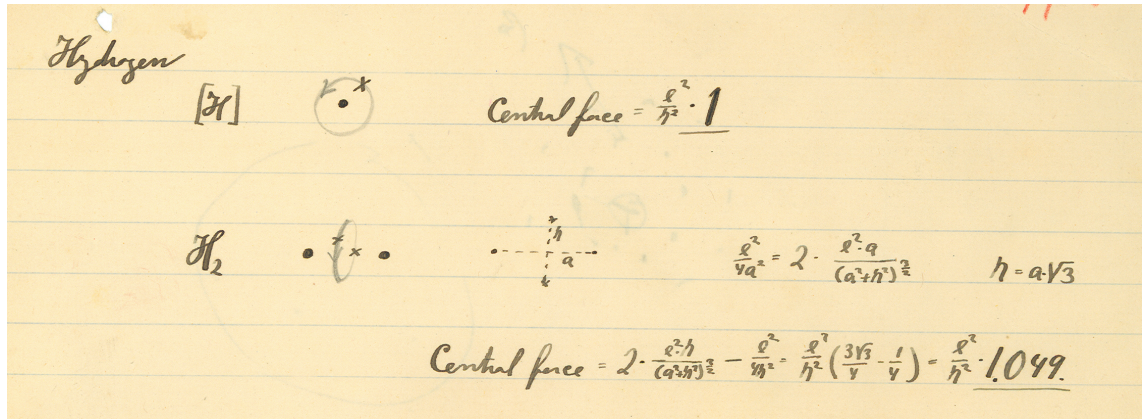 Hydrogen
[H] Central force = e²/h² · 1
h
a
H₂ e²/4a² = 2 · e²·a/(a²+h²)^3/2 h = a·√3
Central force = 2 · e²·h/(a²+h²)^3/2 − e²/4h² = e²/h² (3√3/4 − 1/4) = e²/h² · 1.049.